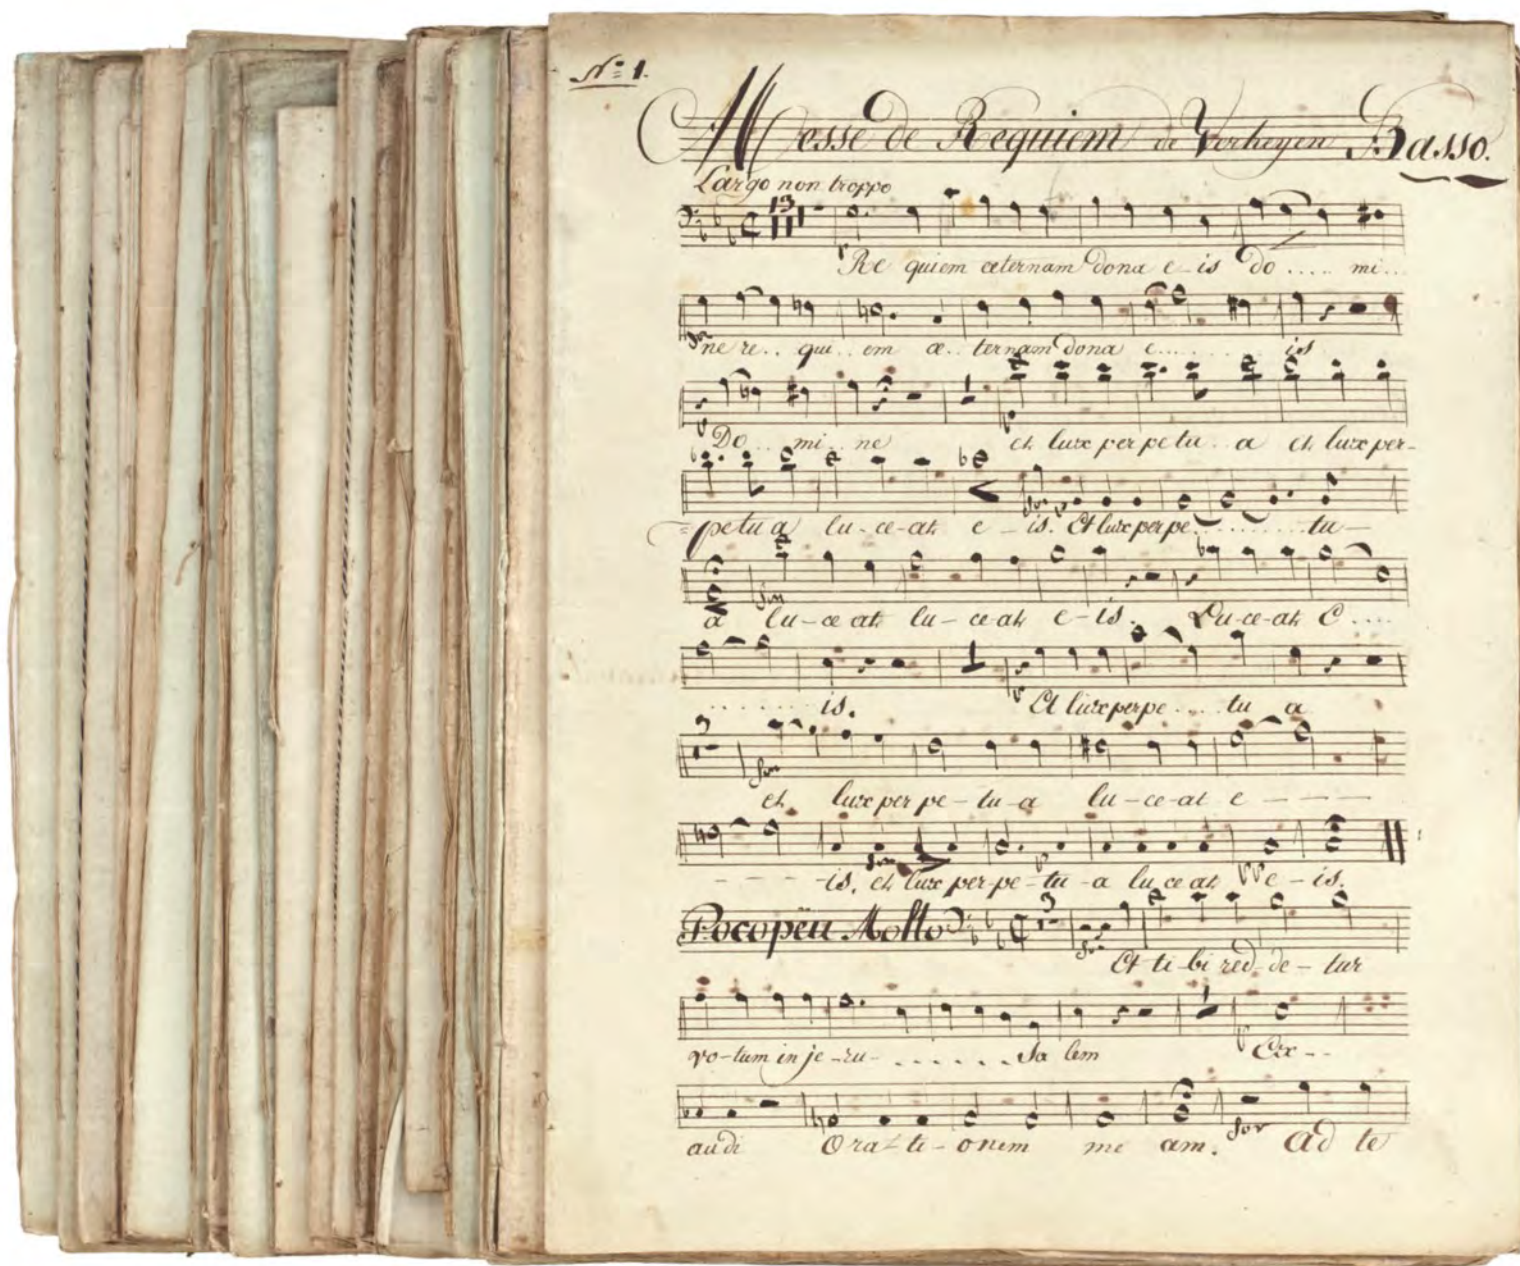 Nº 1.
Messe de Requiem de Verheyen Basso.
Largo non troppo
13
Re quiem æternam dona e-is do..... mi..
ne re.. qui.. em æ.. ternam dona e......... is
Do... mi.. ne et lux perpetu..a et lux per-
=petua lu-ce-at e-is. Et lux perpe......... tu-
a lu-ce at lu-ce-at e-is. Lu-ce-at E....
....... is. Et lux perpe.... tu a
3
et lux per pe-tu-a lu-ce-at e - - - -
- - - -is. et lux per-pe-tu-a lu ce at e-is.
Poco pëu Molto 3
Et ti-bi red-de-tur
vo-tum in je-ru-....... Sa lem Ex--
audi Ora-ti-onem me am. Ad te